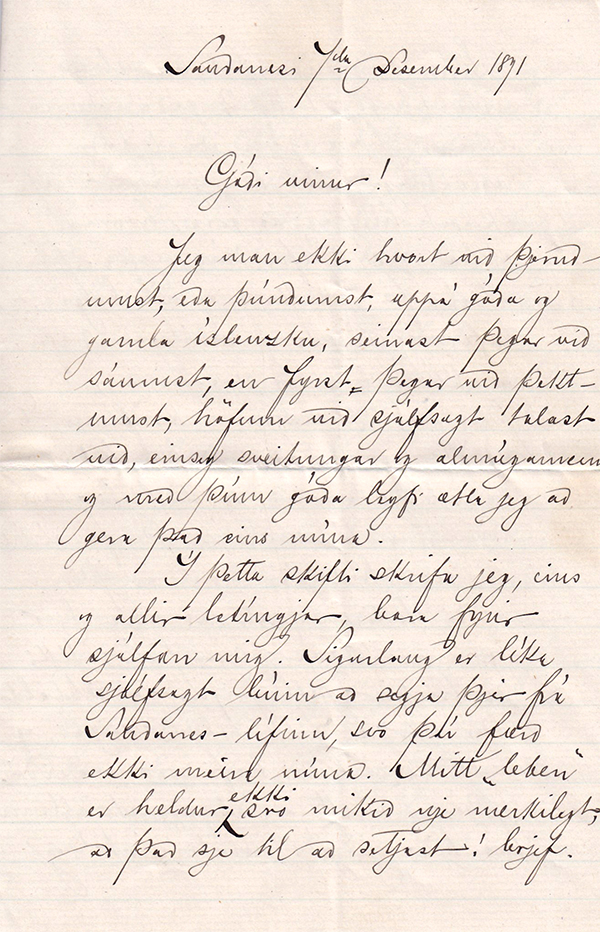 Saudanesi 7da Desember 1891
Góði vinur!
Jeg man ekki hvort við þjerud-
umst, eða þúuðumst, uppá góða og
gamla íslenzku, seinast þegar við
sáumst, en fyrst = þegar við þekt-
umst, höfum við sjálfsagt talast
við, einsog sveitungar og almúgamenn
og með þínu góða leyfi ætla jeg að
gera það eins núna.
Í þetta skifti skrifa jeg, eins
og allir letingjar, bara fyrir
sjálfan mig. Sigurlaug er líka
sjálfsagt búin að segja þjer frá
Saudanes-lífinu, svo þú færð
ekki meira núna. Mitt „leben"
er heldur ekki svo mikið nje merkilegt,
að það sje til að setjast í brjef.